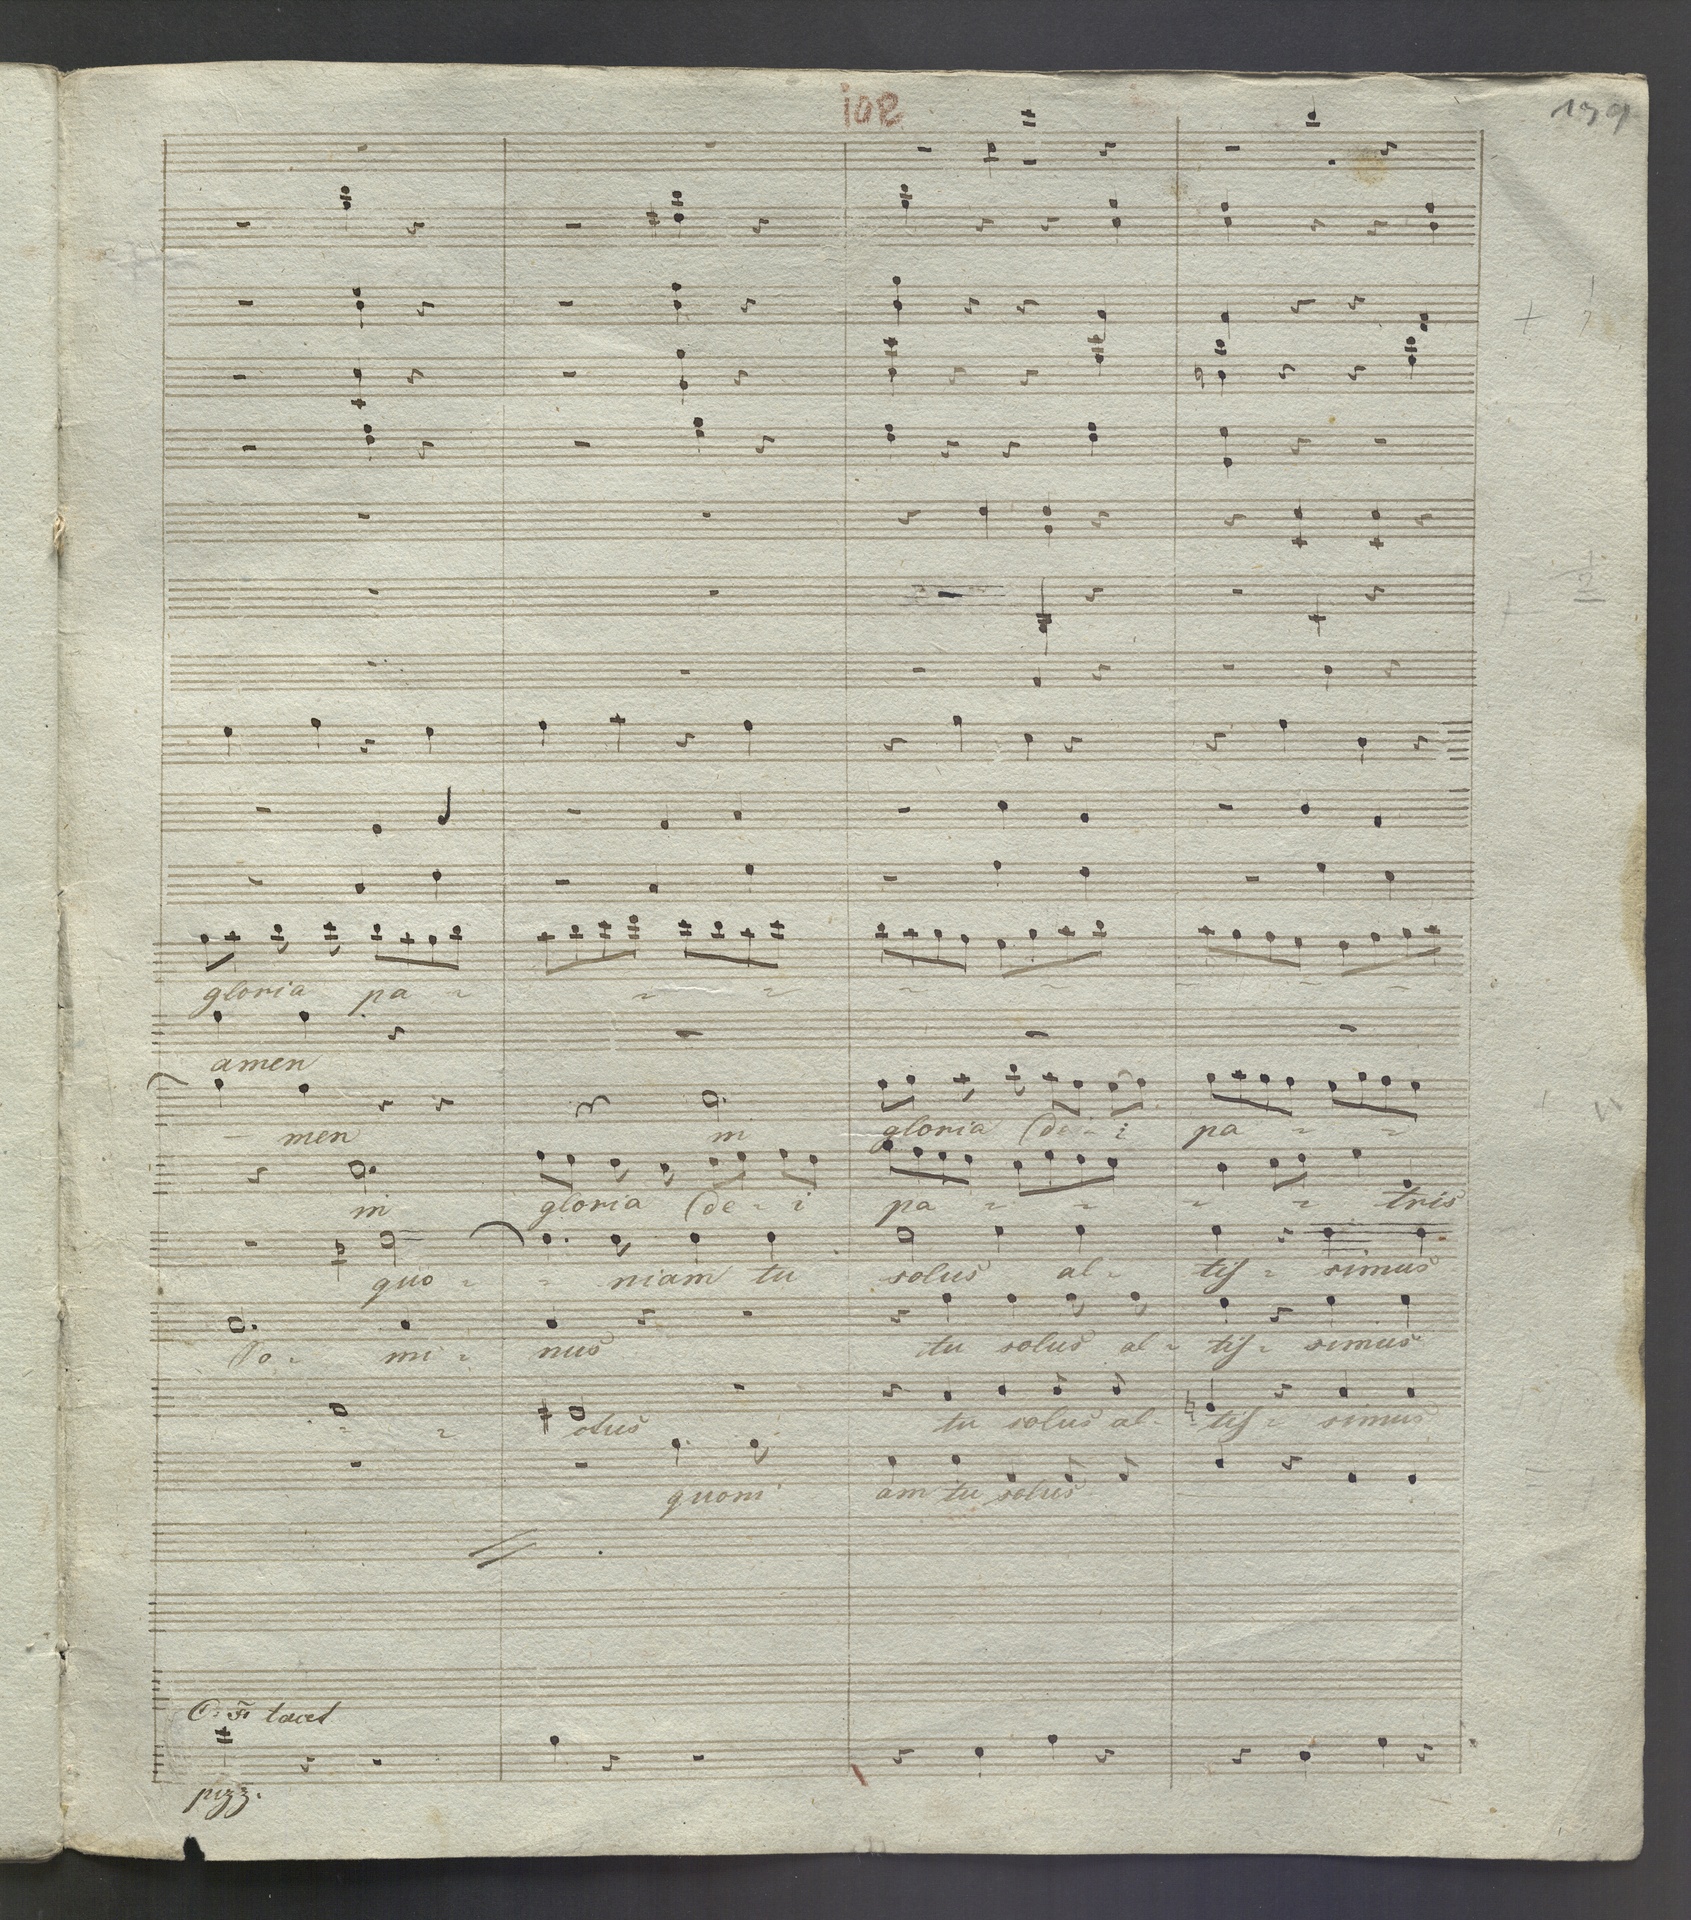 108
gloria pa -
amen
- men in gloria dei pa - -
in gloria de - i pa - - - - tris
quo - - niam tu solus al - tis - simus
Do - mi - nus tu solus al - tis - simus
- - ctus tu solus al - tis - simus
quoni am tu solus
C: F: tacet
pizz.